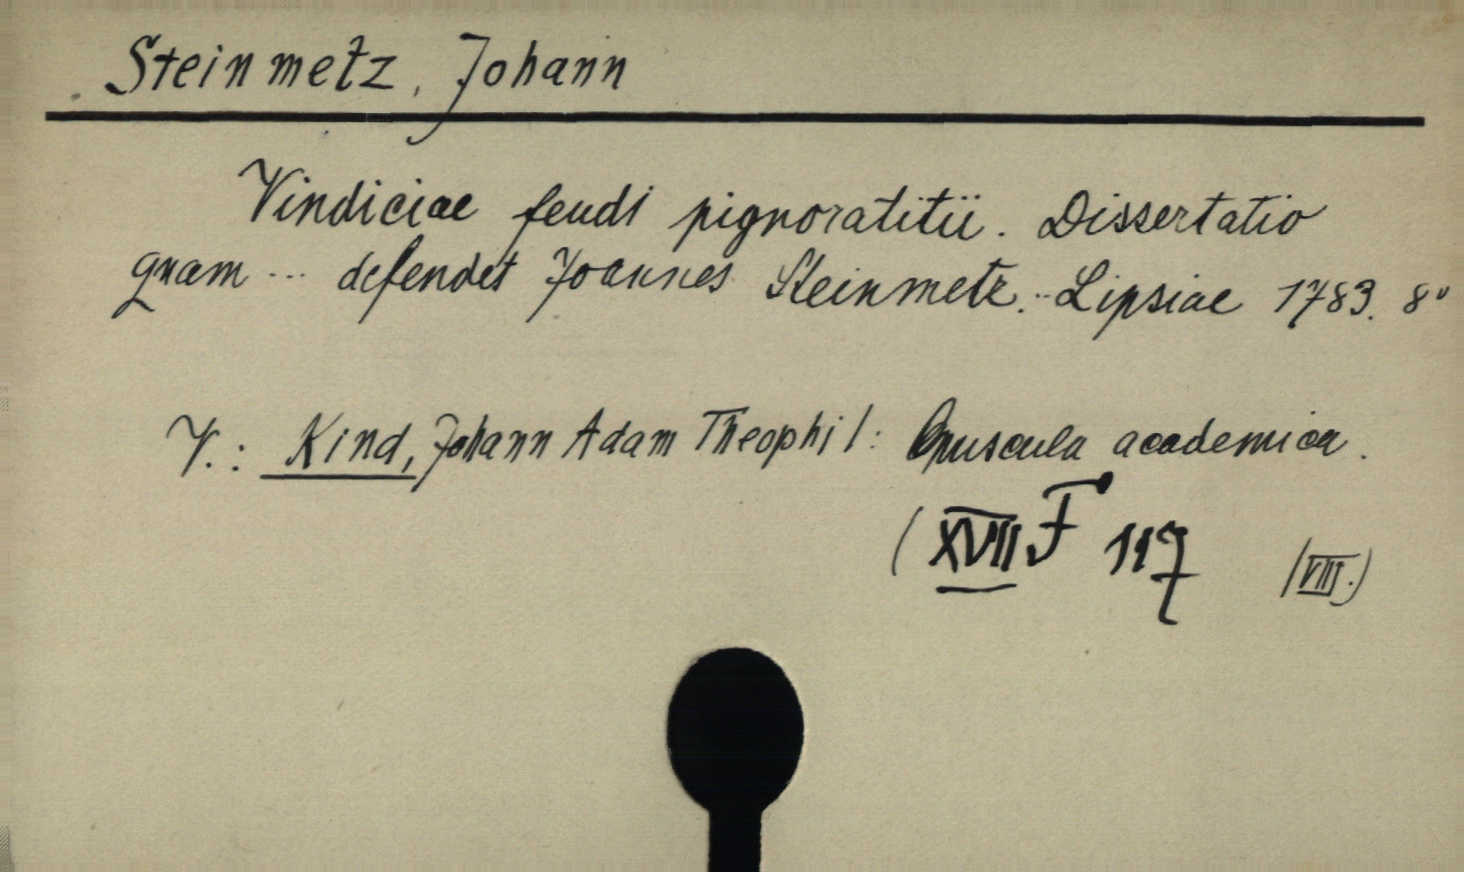 Steinmetz, Johann
Vindiciae feudi pignoratitii. Dissertatio
quam ... defendet Joannes Steinmetz... Lipsiae 1783. 8°
V.: Kind, Johann Adam Theophil: Opuscula academica.
(XVII F 117 (VIII.)